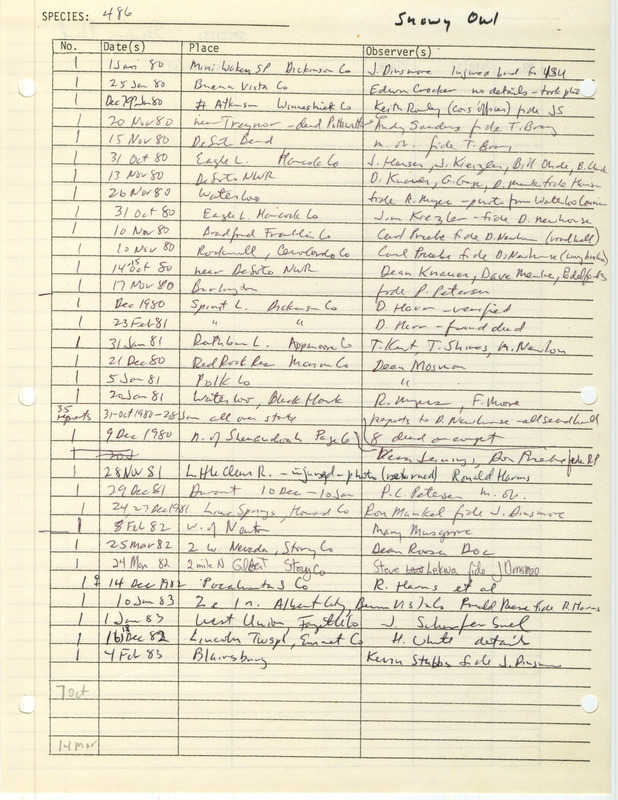 SPECIES: 486 Snowy Owl
No. Date(s) Place Observer(s)
1 1 Jan 80 Mini Waken SP Dickinson Co J. Dinsmore Injured bird to
1 25 Jan 80 Buena Vista Co Edwin Crocker no details - took photo
1 Dec 79, Jan 80 Ft Atkinson Winneshiek Co Keith (cons officer) fide JS
1 20 Nov 80 near Treynor - dead Pottawattamie Co Andy Sanders fide T. Bray
1 15 Nov 80 DeSoto Bend m. ob. fide T. Bray
1 31 Oct 80 Eagle L. Hancock Co J. Hansen, J. Kiezler, Bill Ohde, B.
1 13 Nov 80 DeSoto NWR D. Knauer, G. Gage, D. Menke fide
1 26 Nov 80 Waterloo fide R. Myers - photo from Waterloo Courier
1 31 Oct 80 Eagle L. Hancock Co Jim Kiezler - fide D. Newhouse
1 10 Nov 80 Bradford Franklin Co Carl Priebe fide D. Newhouse
1 10 Nov 80 Rockwell, Cerro Gordo Co Carl Priebe fide D. Newhouse
1 14, 15 Oct 80 near DeSoto NWR Dean Knauer, Dave Menke,
1 17 Nov 80 Burlington fide P. Petersen
1 Dec 1980 Spirit L. Dickinson Co D. Harr - verified
1 23 Feb 81 " " D. Harr - found dead
1 31 Jan 81 Rathbun L. Appanoose Co T. Kent, T. Shires, N. Newlon
1 21 Dec 80 Red Rock Res Marion Co Dean Mosman
1 5 Jan 81 Polk Co "
1 20 Jan 81 Waterloo, Black Hawk R. Myers, F. Moore
35 reports 31 Oct 1980 - 28 Jan all over state reports to D. Newhouse - all second hand
1 9 Dec 1980 n. of Shenandoah Page Co 8 dead or
Jennings, Ron Priebe fide RP
1 28 Nov 81 Little Clear R. - injured - photo (returned) Ronald Harms
1 29 Dec 81 Durant 10 Dec - 10 Jan P.C. Petersen m. ob.
1 24, 27 Dec 1981 Lime Springs, Howard Co Ron Munkel fide J. Dinsmore
1 8 Feb 82 W. of Newton Mary Musgrove
1 25 Mar 82 2 W. Nevada, Story Co Dean Roosa Doc
1 24 Mar 82 2 mile N Gilbert Story Co Steve Lekwa fide J Dinsmore
1 ♀ 14 Dec 1982 Pocahontas Co R. Harms et al
1 10 Jan 83 2 e 1 n. Albert City, Buena Vista Co Ronald fide R. Harms
1 1 Jan 83 West Union Fayette Co J. Schaufenbuel
1 16, 18 Dec 82 Lincoln Twsp, Emmet Co H. White details
1 4 Feb 83 Blairsburg Kevin Stubbs fide J. Dinsmore
7 Oct
14 Mar